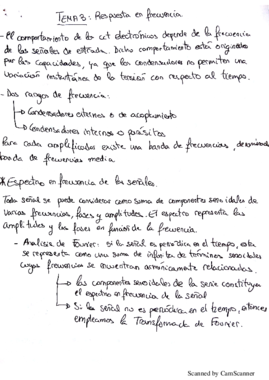 TEMA 3: Respuesta en frecuencia.
- El comportamiento de los cct electrónicos depende de la frecuencia
de las señales de entrada. Dicho comportamiento está originado
por las capacidades, ya que los condensadores no permiten una
variación instantánea de la tensión con respecto al tiempo.
- Dos rangos de frecuencia:
Condensadores externos o de acoplamiento
Condensadores internos o parásitos
Para cada amplificador existe una banda de frecuencias, denominada
banda de frecuencias media
* Espectro en frecuencia de las señales.
Toda señal se puede considerar como suma de componentes senoidales de
varias frecuencias, fases y amplitudes. El espectro representa las
amplitudes y las fases en función de la frecuencia.
- Análisis de Fourier. Si la señal es periódica en el tiempo, esta
se representa como una suma de infinitos términos senoidales
cuyas frecuencias se encuentran armónicamente relacionadas.
las componentes senoidales de la serie constituyen
el espectro en frecuencia de la señal
Si la señal no es periódica en el tiempo, entonces
empleamos la Transformada de Fourier.
Scanned by CamScanner